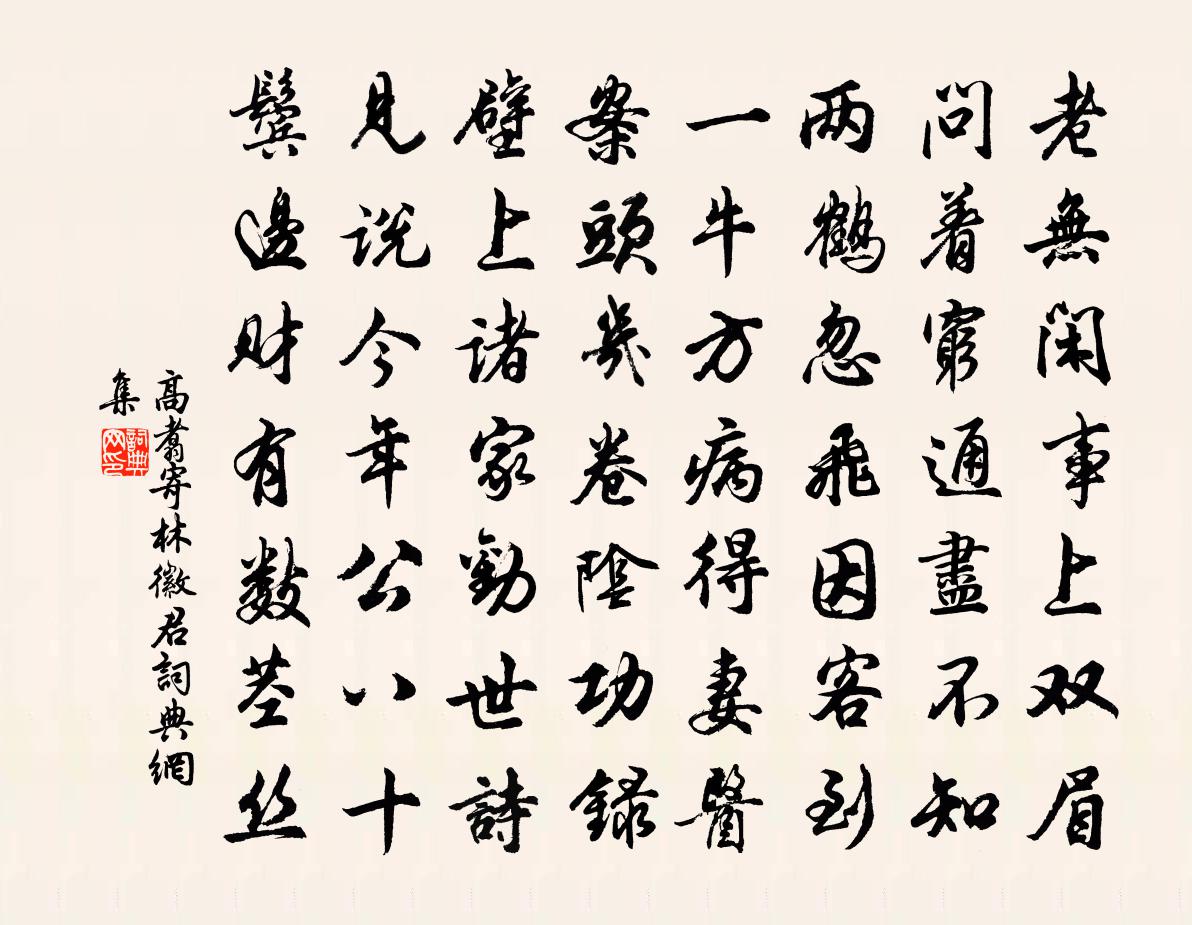 老無閑事上双眉
問着窮通盡不知
两鶴忽飛因客到
一牛方病得妻醫
案頭幾卷陰功錄
壁上諸家勸世詩
見说今年公八十
鬓邊财有数茎丝
高翥寄林徽君詞典網
集
詞典網印